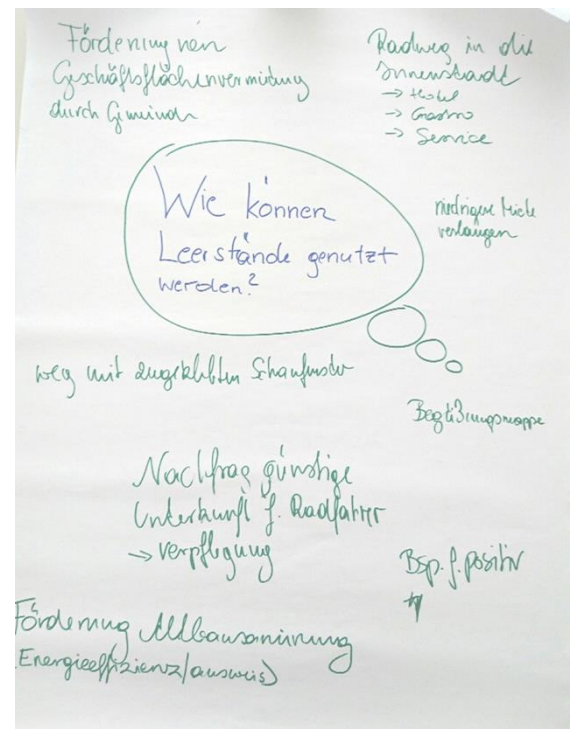 Förderung
Geschäftsflächenvermietung
durch Gemeinde
Radweg in die
Innenstadt
→ Hotel
→ Gastro
→ Service
Wie können
Leerstände genutzt
werden?
niedrigere Miete
verlangen
weg mit zugeklebten Schaufenster
Begrüßungsmappe
Nachfrage günstige
Unterkunft f. Radfahrer
→ Verpflegung
Bsp. f. positiv
Förderung Altbausanierung
(Energieeffizienz/ausweis)